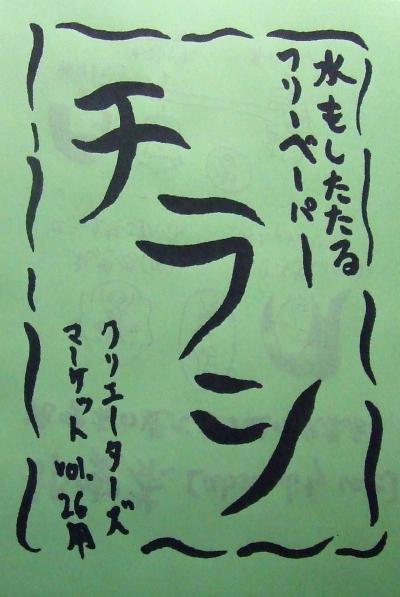 水もしたたる
フリーペーパー
チラシ
クリエーターズ
マーケット vol.26用